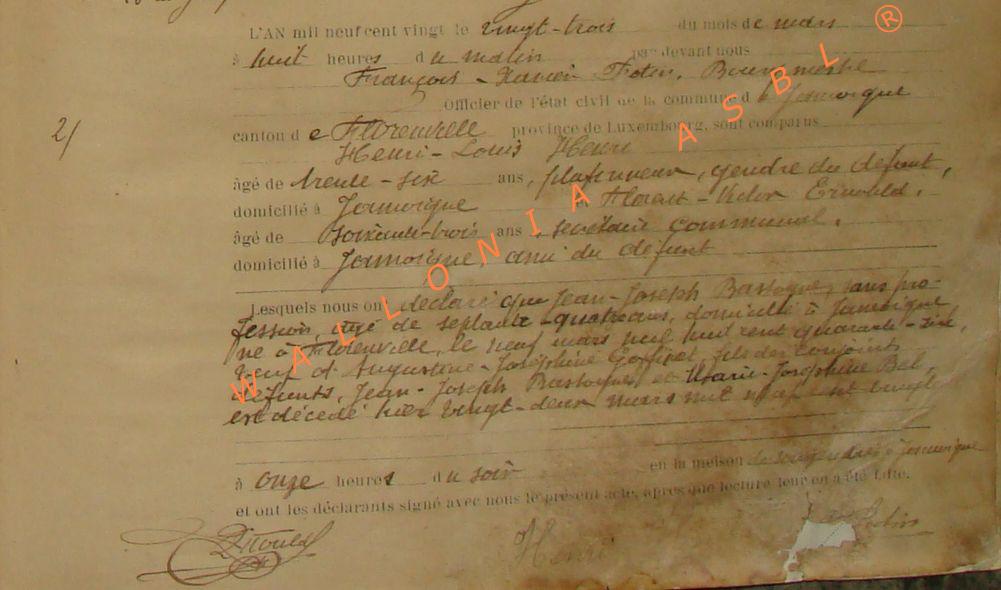 L'AN mil neuf cent vingt le vingt-trois du mois de mars
à huit heures du matin par devant nous
François-Xavier Bourgmestre
Officier de l'état civil de la commune de Jamoigne
canton de Florenville province de Luxembourg, sont comparus
21
Henri-Louis Henri
âgé de trente-six ans, plafonneur, gendre du défunt,
domicilié à Jamoigne et Florent-Victor
âgé de soixante-trois ans, secrétaire communal,
domicilié à Jamoigne, ami du défunt
Lesquels nous ont déclaré que Jean-Joseph Bastogne, sans pro-
fession, âgé de septante-quatre ans, domicilié à Jamoigne
né à Florenville, le neuf mars mil huit cent quarante-six,
veuf d'Augustine-Joséphine Goffinet, fils des conjoints
défunts, Jean-Joseph Bastogne, et Marie-Joséphine
est décédé hier vingt-deux mars mil neuf cent vingt
à onze heures du soir en la maison de son gendre à Jamoigne
et ont les déclarants signé avec nous le présent acte, après que lecture leur en a été faite.
Henri
WALLONIA ASBL ®